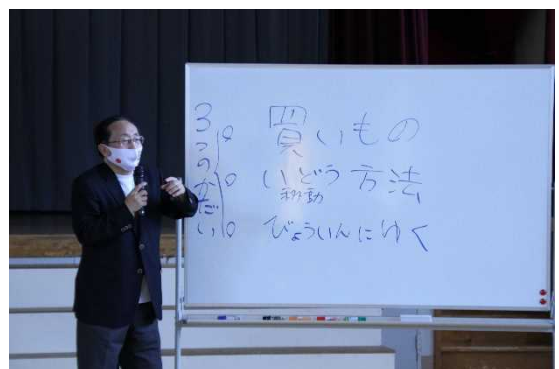 3つのかだい
買いもの
いどう方法
移動
びょういんにゆく